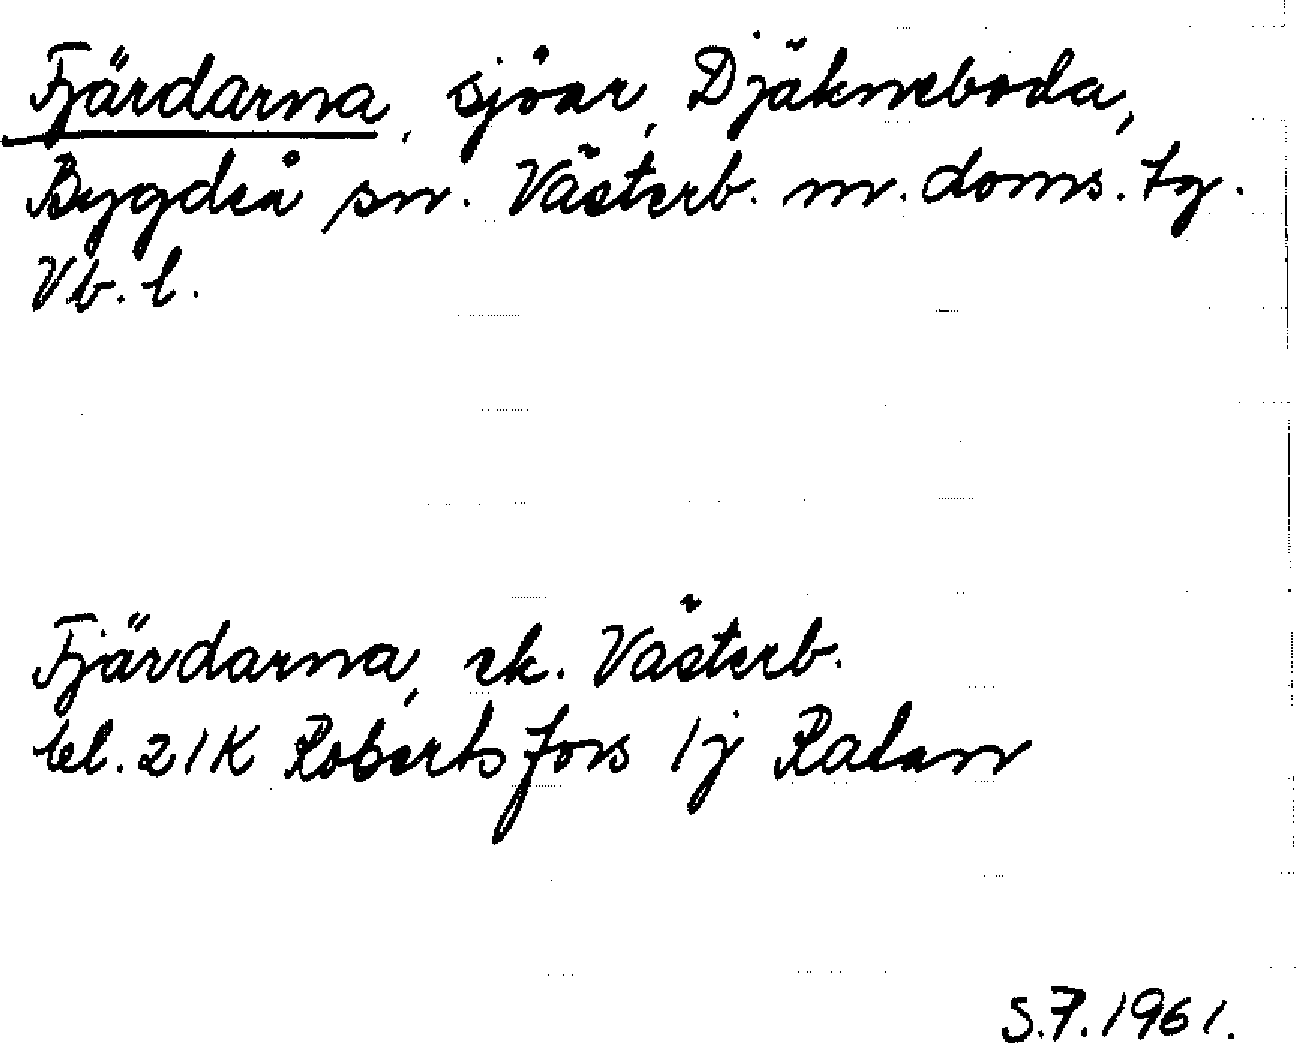 Fjärdarna, sjöar, Djäkneboda,
Bygdeå sn. Västerb. m. doms. tg.
Vb. l.
Fjärdarna, ek. Västerb.
bl. 21K Robertsfors 1j Ratan
S.F. 1961.